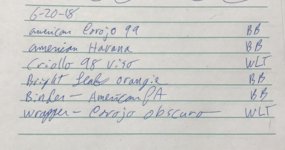 6-20-18
american Corojo 99 BB
american Havana BB
Criollo 98 Viso WLT
Bright Leaf orangie BB
Binder - American PA BB
wrapper - Corojo obscuro WLT